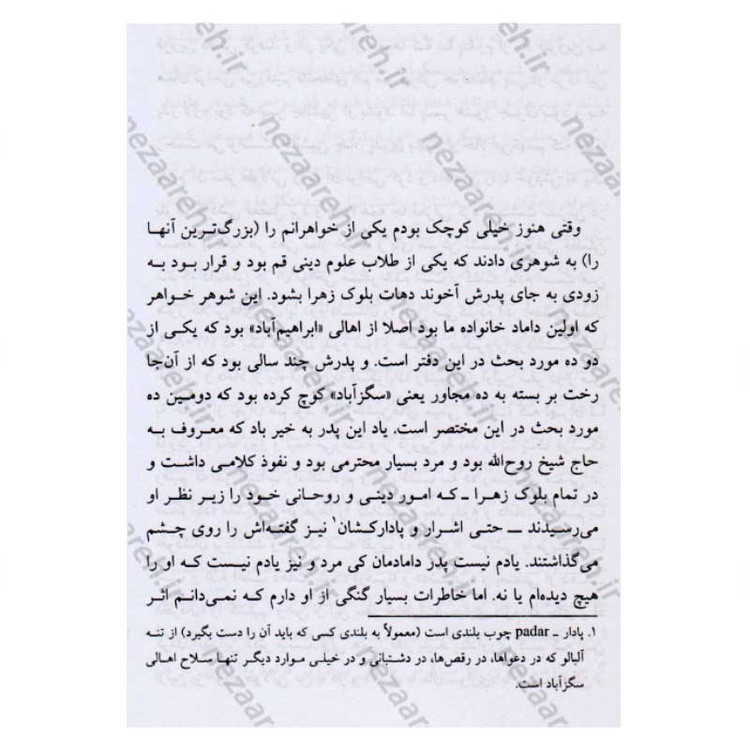 وقتی هنوز خیلی کوچک بودم یکی از خواهرانم را (بزرگ‌ترین آنها
را) به شوهری دادند که یکی از طلاب علوم دینی قم بود و قرار بود به
زودی به جای پدرش آخوند دهات بلوک زهرا بشود. این شوهر خواهر
که اولین داماد خانواده ما بود اصلا از اهالی «ابراهیم‌آباد» بود که یکی از
دو ده مورد بحث در این دفتر است. و پدرش چند سالی بود که از آن‌جا
رخت بر بسته به ده مجاور یعنی «سگزآباد» کوچ کرده بود که دومین ده
مورد بحث در این مختصر است. یاد این پدر به خیر باد که معروف به
حاج شیخ روح‌الله بود و مرد بسیار محترمی بود و نفوذ کلامی داشت و
در تمام بلوک زهرا ـ که امور دینی و روحانی خود را زیر نظر او
می‌رسیدند ــ حتی اشرار و پادارکشان۱ نیز گفته‌اش را روی چشم
می‌گذاشتند. یادم نیست پدر دامادمان کی مرد و نیز یادم نیست که او را
هیچ دیده‌ام یا نه. اما خاطرات بسیار گنگی از او دارم که نمی‌دانم اثر
۱. پادار ـ padar چوب بلندی است (معمولاً به بلندی کسی که باید آن را دست بگیرد) از تنه
آلبالو که در دعواها، در رقص‌ها، در دشتبانی و در خیلی موارد دیگر تنها سلاح اهالی
سگزآباد است.
nezaareh.ir